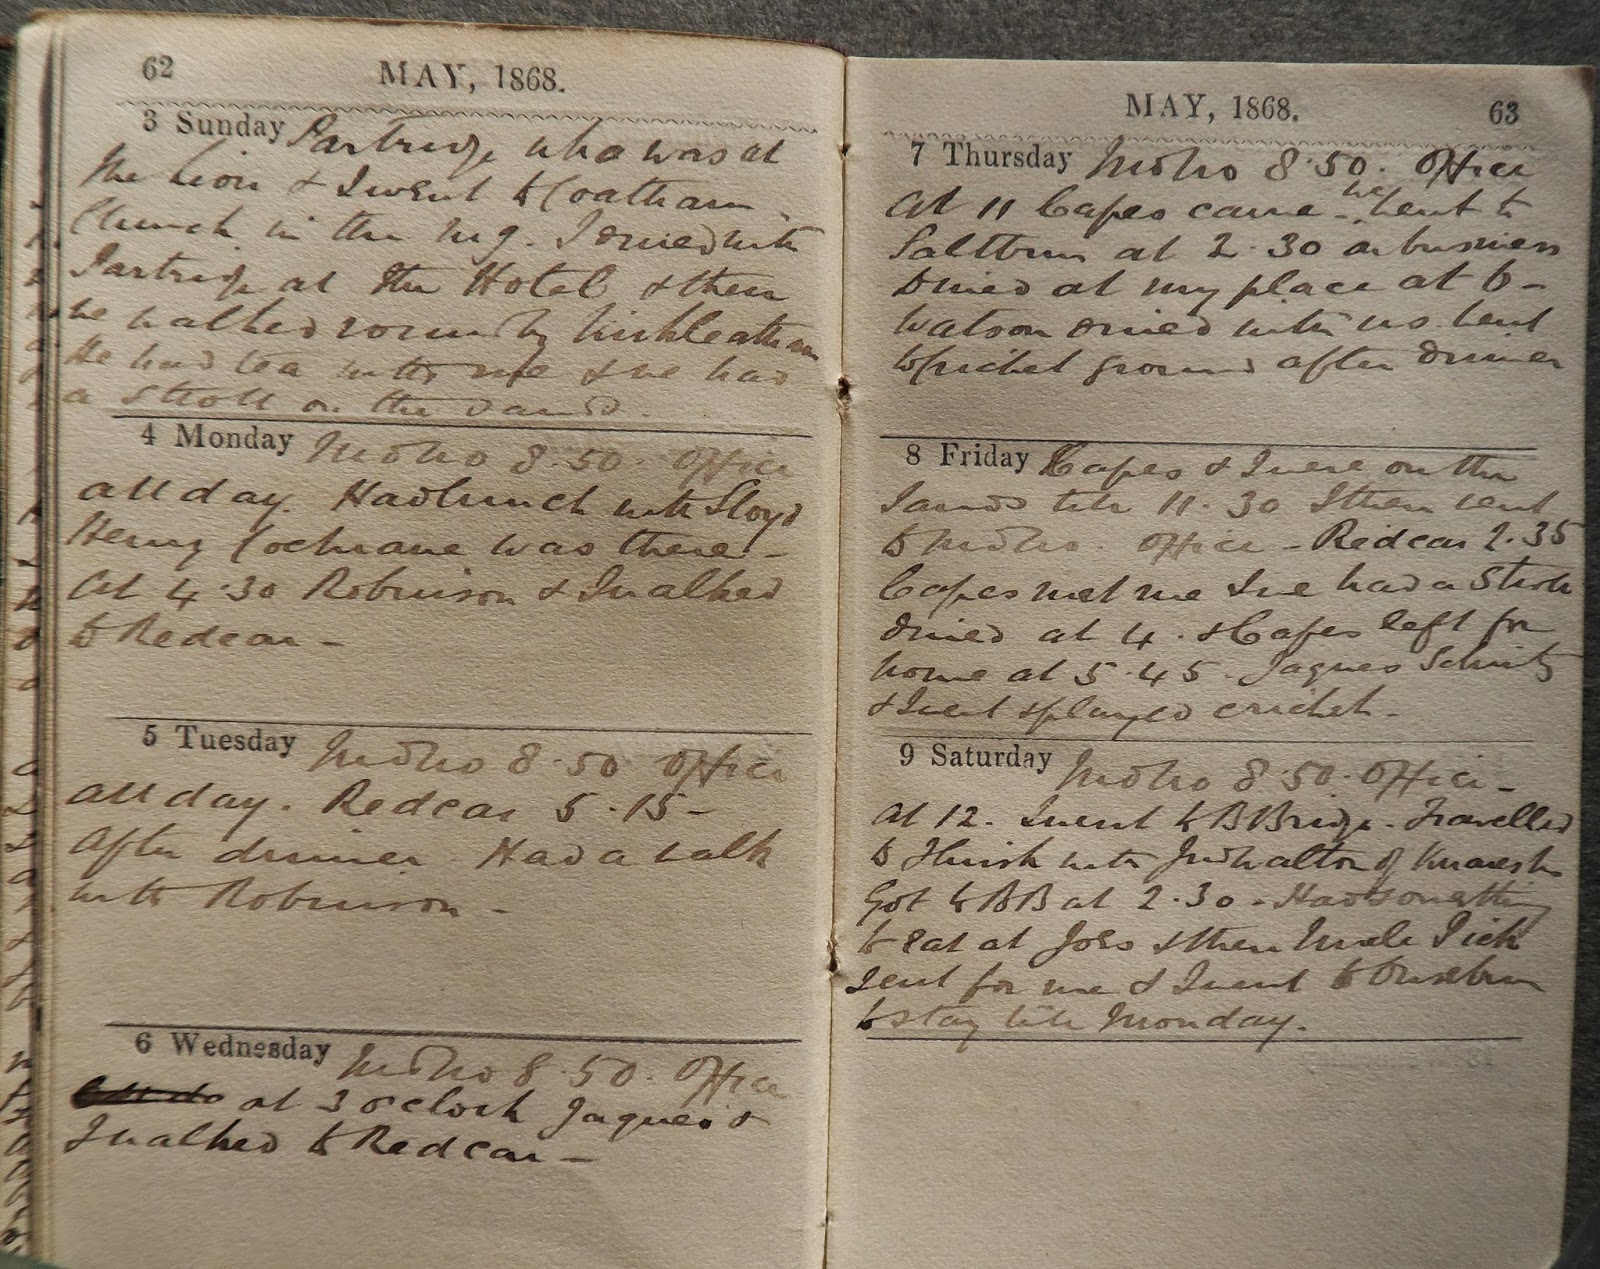 62
MAY, 1868.
3 Sunday Partridge who was at
the Lion & I went to Coatham
Church in the mg. I dined with
Partridge at the Hotel & then
we walked round by Kirkleatham
He had tea with me & we had
a stroll on the sands.
4 Monday Mdbro 8.50. Office
all day. Had lunch with Lloyd
Henry Cochrane was there -
At 4.30 Robinson & I walked
to Redcar -
5 Tuesday Mdbro 8.50 Office
all day. Redcar 5.15 -
After dinner Had a walk
with Robinson -
6 Wednesday Mdbro 8.50. Office
at 3 o'clock Jaques &
I walked to Redcar -
MAY, 1868.
63
7 Thursday Mdbro 8.50. Office
At 11 Capes came - we went to
Saltburn at 2.30 on business
Dined at my place at 6 -
Watson dined with us. Went
to Cricket ground after dinner
8 Friday Capes & I were on the
Sands till 11.30 I then went
to Mdbro. Office - Redcar 2.35
Capes met me & we had a stroll
dined at 4. & Capes left for
home at 5.45. Jaques
& I went & played cricket -
9 Saturday Mdbro 8.50. Office -
At 12. I went to BBridge. Travelled
to Thirsk with Walton of Knaresbro
Got to BB at 2.30 - Had something
to eat at Joes & then Uncle Dick
sent for me & I went to Ouseburn
to stay till Monday.